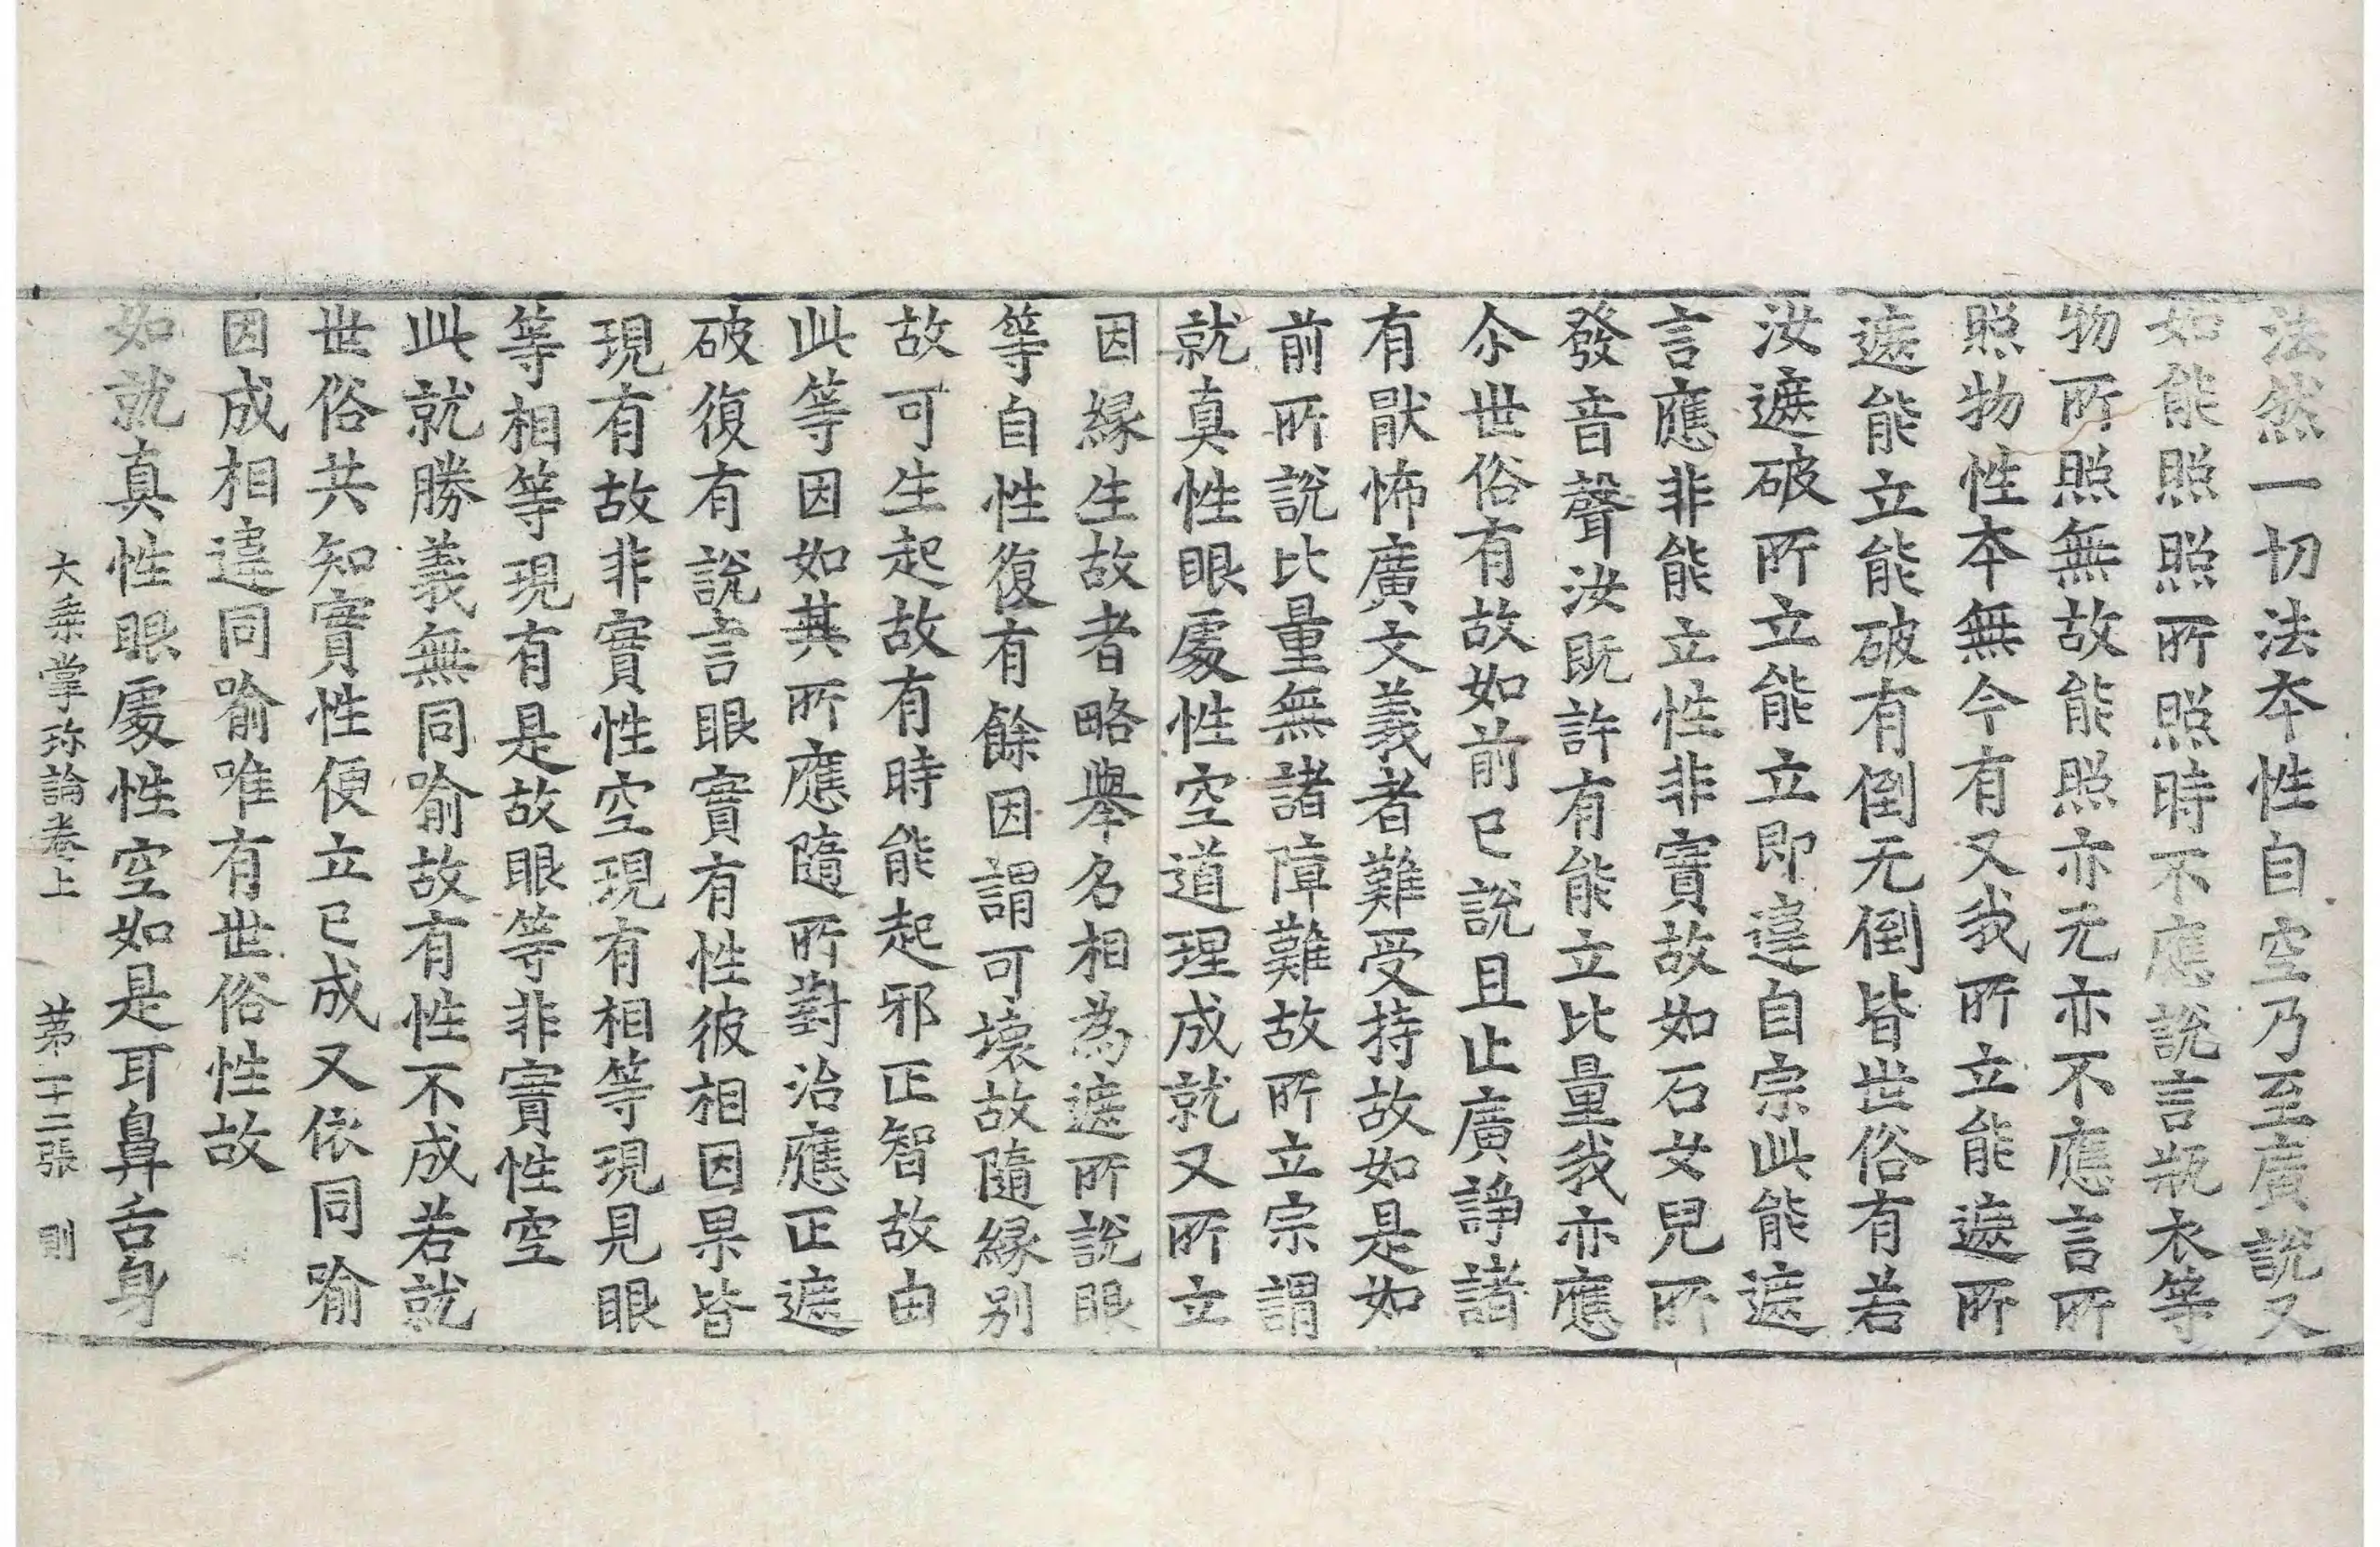 法然一切法本性自空乃至廣說又
如能照照所照時不應說言瓶衣等
物所照無故能照亦无亦不應言所
照物性本無今有又我所立能遮所
遮能立能破有倒无倒皆世俗有若
汝遮破所立能立即違自宗此能遮
言應非能立性非實故如石女兒所
發音聲汝既許有能立比量我亦應
尒世俗有故如前已說且止廣諍諸
有猒怖廣文義者難受持故如是如
前所說比量無諸障難故所立宗謂
就真性眼處性空道理成就又所立
因緣生故者略舉名相為遮所說眼
等自性復有餘因謂可壞故隨緣別
故可生起故有時能起邪正智故由
此等因如其所應隨所對治應正遮
破復有說言眼實有性彼相因果皆
現有故非實性空現有相等現見眼
等相等現有是故眼等非實性空
此就勝義無同喻故有性不成若就
世俗共知實性便立已成又依同喻
因成相違同喻唯有世俗性故
如就真性眼處性空如是耳鼻舌身
大乘掌珎論卷上　第十二張　則